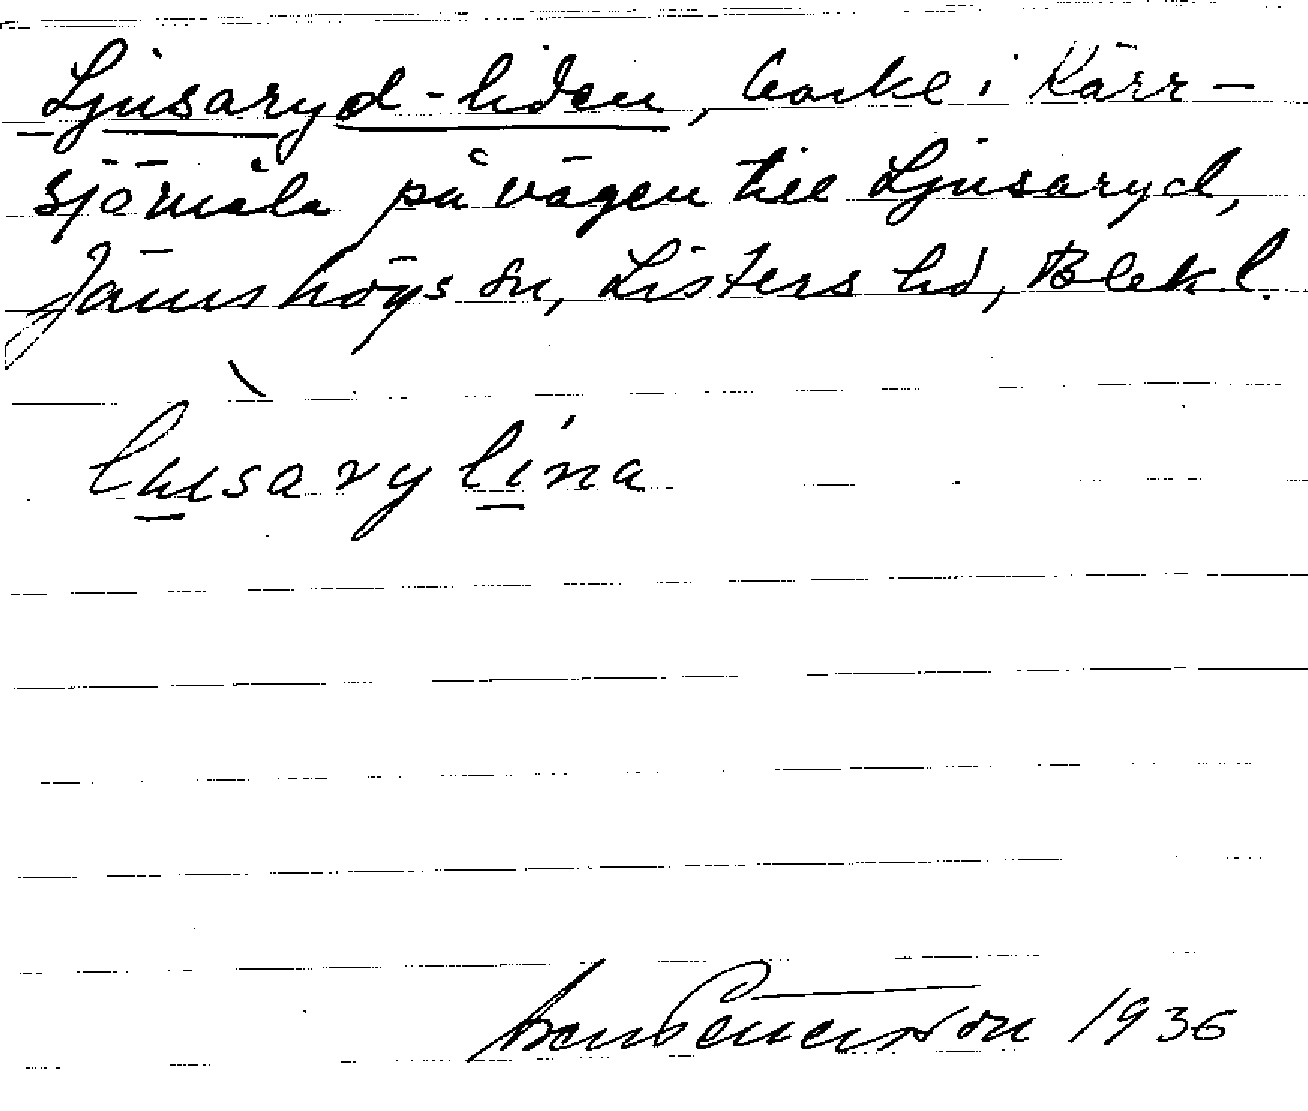 Ljusaryd-liden, backe i Kärr-
sjömåla på vägen till Ljusaryd,
Jämshögs sn, Listers hd, Blekl.
lusarylina
1936